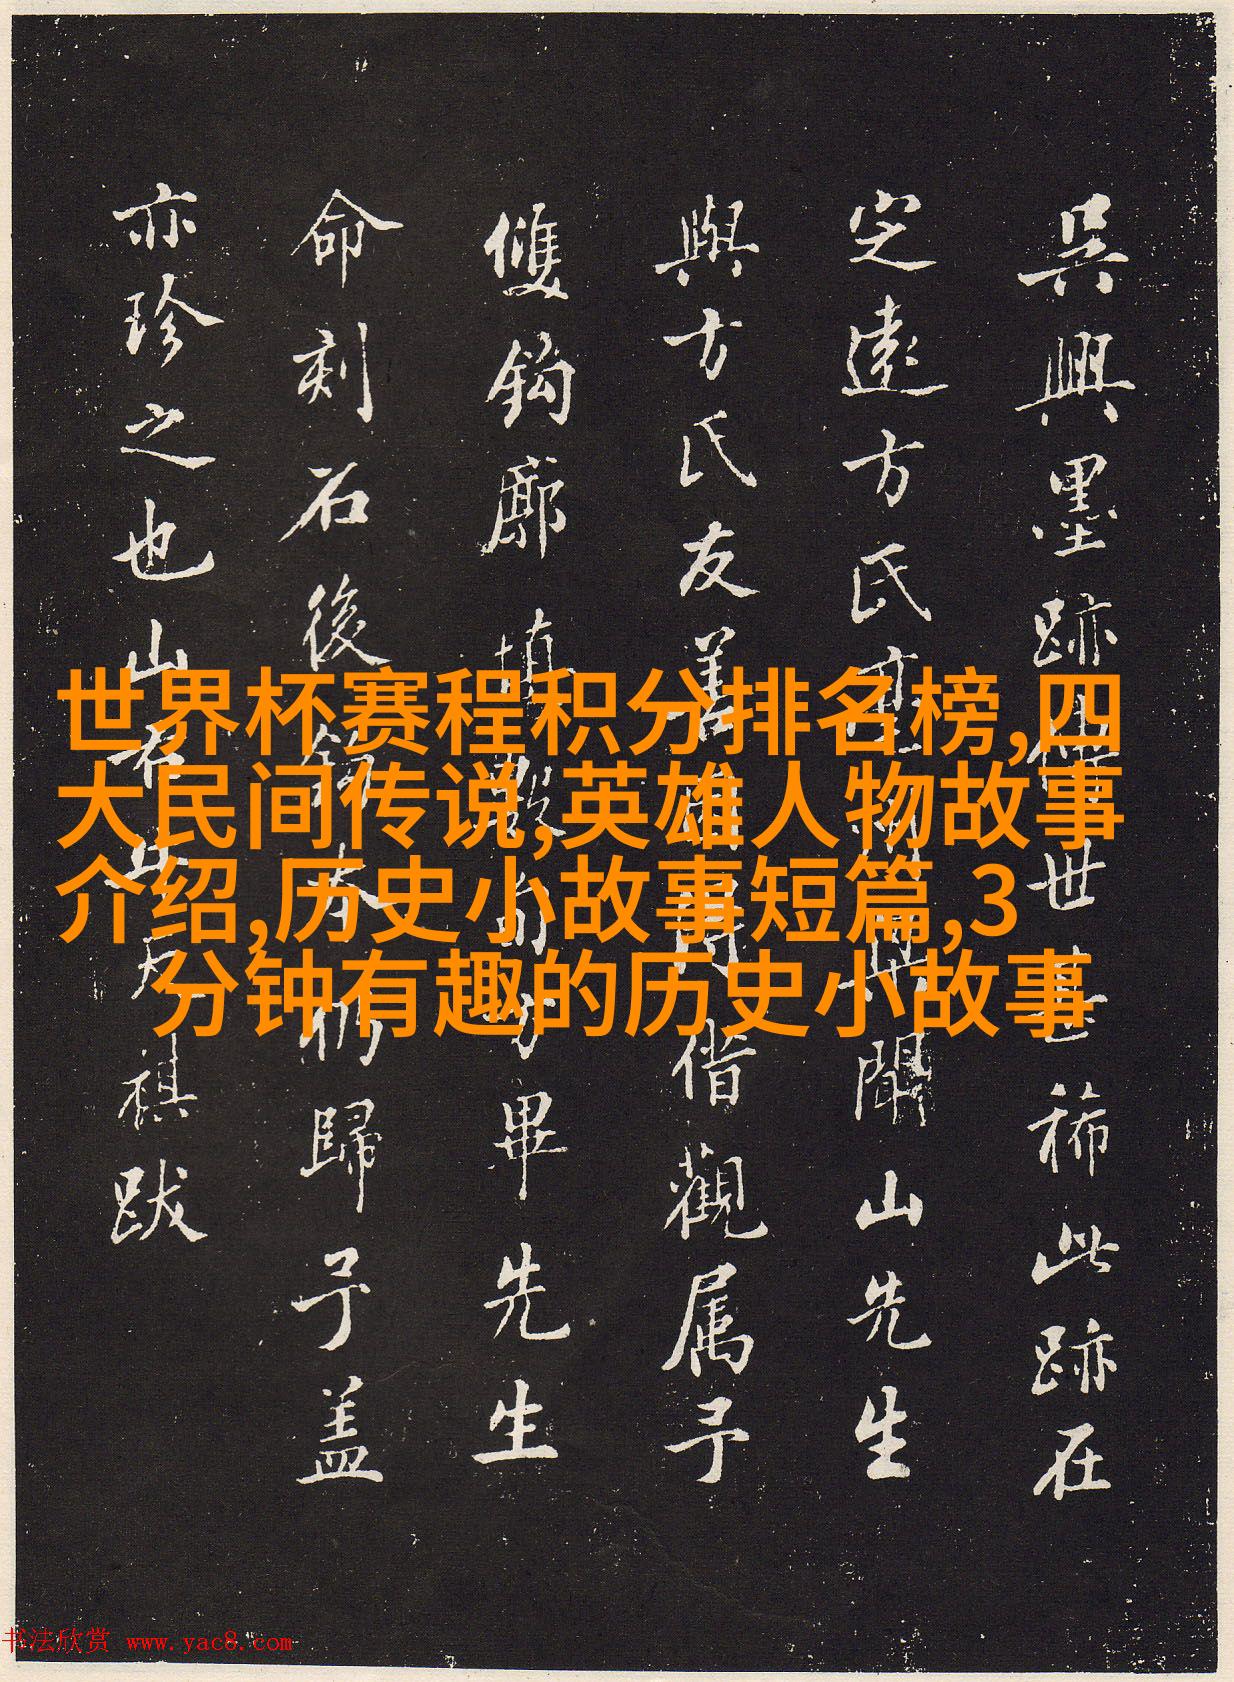 吳興墨跡
世
稀此跡在
定遠方氏
聞山先生
與方氏友善
借觀属予
雙鉤廓填
畢先生
命刻石後
歸予蓋
亦珍之也山
祺跋
世界杯赛程积分排名榜,四
大民间传说,英雄人物故事
介绍,历史小故事短篇,3
分钟有趣的历史小故事
书法欣赏 www.yac8.com